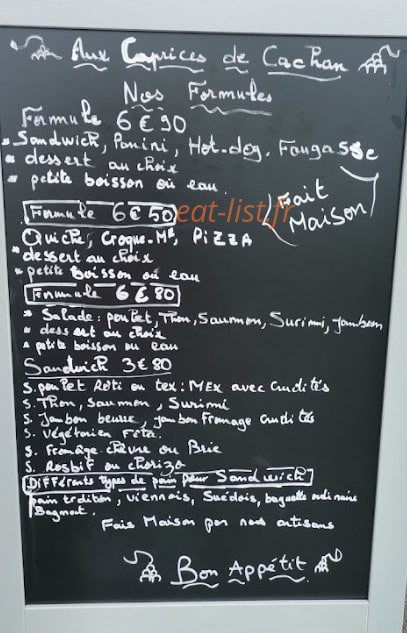 Aux Caprices de Cachan
Nos Formules
Formule 6€90
* Sandwich, Panini, Hot-dog, Fougasse
* dessert au choix
* petite boisson où eau
(Fait Maison)
Formule 6€50
eat-list.fr
Quiche, Croque-Mr, PiZZA
* dessert au choix
* petite boisson ou eau
Formule 6€80
* Salade: poulet, Thon, Saumon, Surimi, jambon
* dessert au choix
* petite boisson ou eau
Sandwich 3€80
S. poulet Roti ou tex:MEx avec Crudités
S. Thon, Saumon, Surimi
S. Jambon beurre, jambon fromage crudités
S. Végétarien Féta.
S. Fromage chèvre ou Brie
S. Rosbif ou chorizo
Différents types de pain pour Sandwich
pain traditon, Viennois, Suédois, baguette ordinaire
Bagnat.
Fais Maison par nos artisans
Bon Appétit